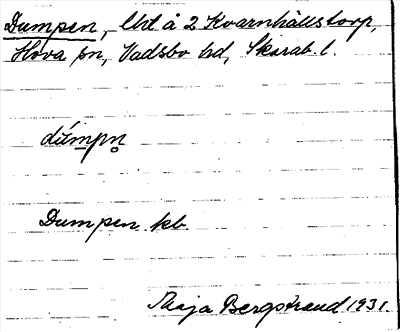 Dumpen, lht å 2 Kvarnhällstorp,
Hova sn, Vadsbo hd, Skarab. l.
dúmpn̥
Dumpen kb
Maja Bergstrand 1931.